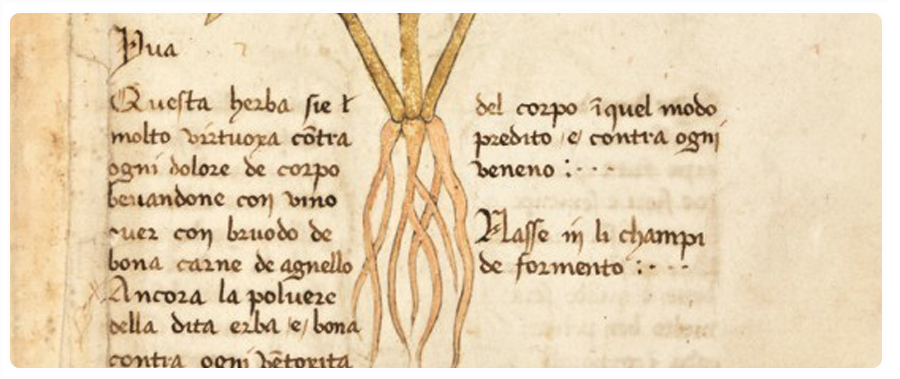 Questa herba sie
molto virtuoxa cõtra
ogni dolore de corpo
beuandone con vino
con bruodo de
bona carne de agnello
Ancora la poluere
della dita erba /e/ bona
contra ogni vẽtoxita
del corpo ĩ quel modo
predito /e/ contra ogni
veneno :· - · -
Nasse in li champi
de formento :· - · -